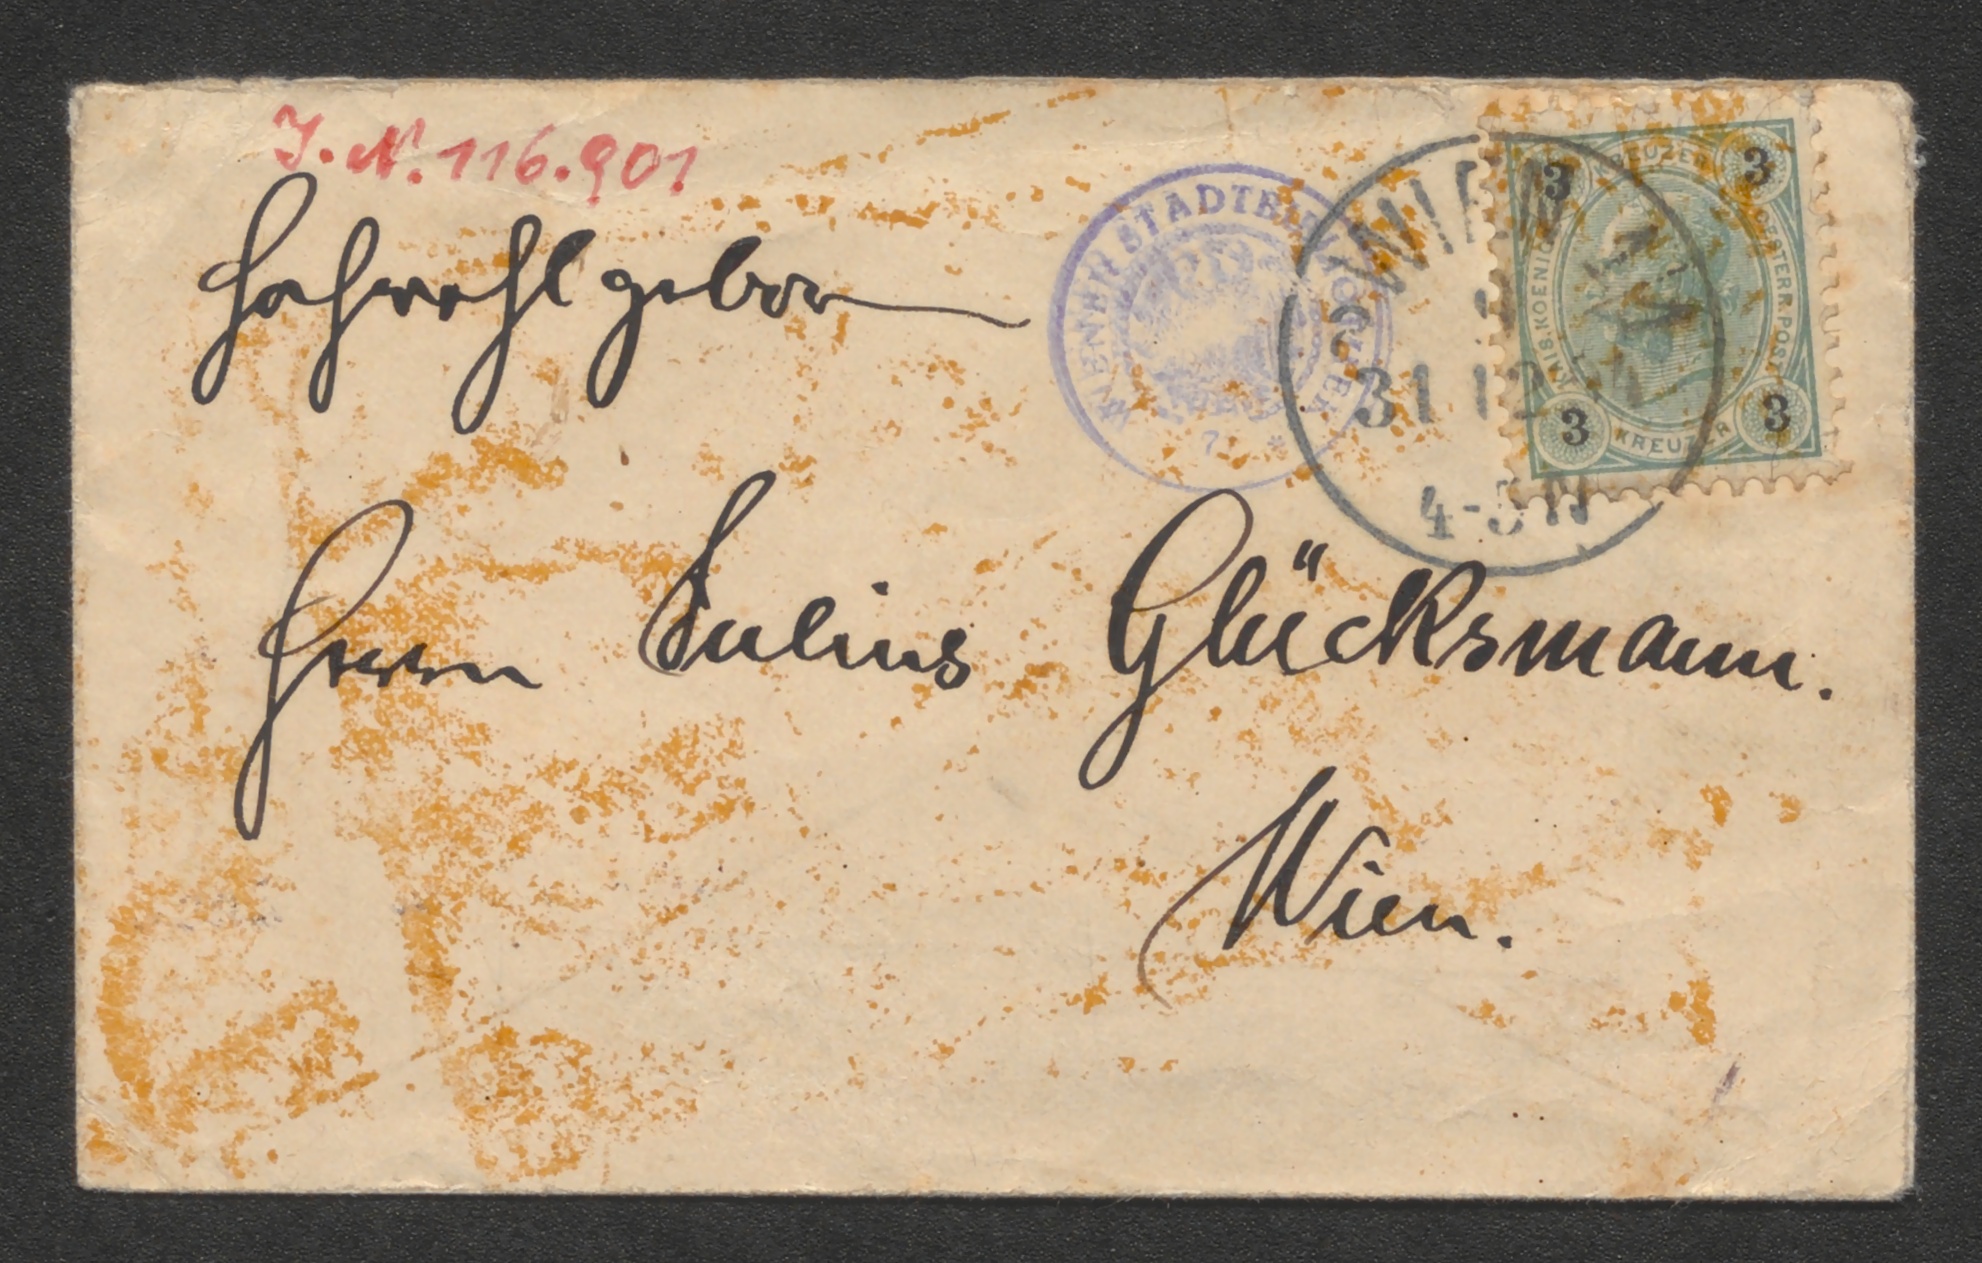 J. N. 116.901
Hochwohlgeborn
Herrn Julius Glücksmann.
Wien.
WIENER STADTBIBLIOTHEK
7 *
WIEN
31 12
4-5 N
3 KREUZER 3
KAIS. KOENIGL. OESTERR. POST
3 KREUZER 3